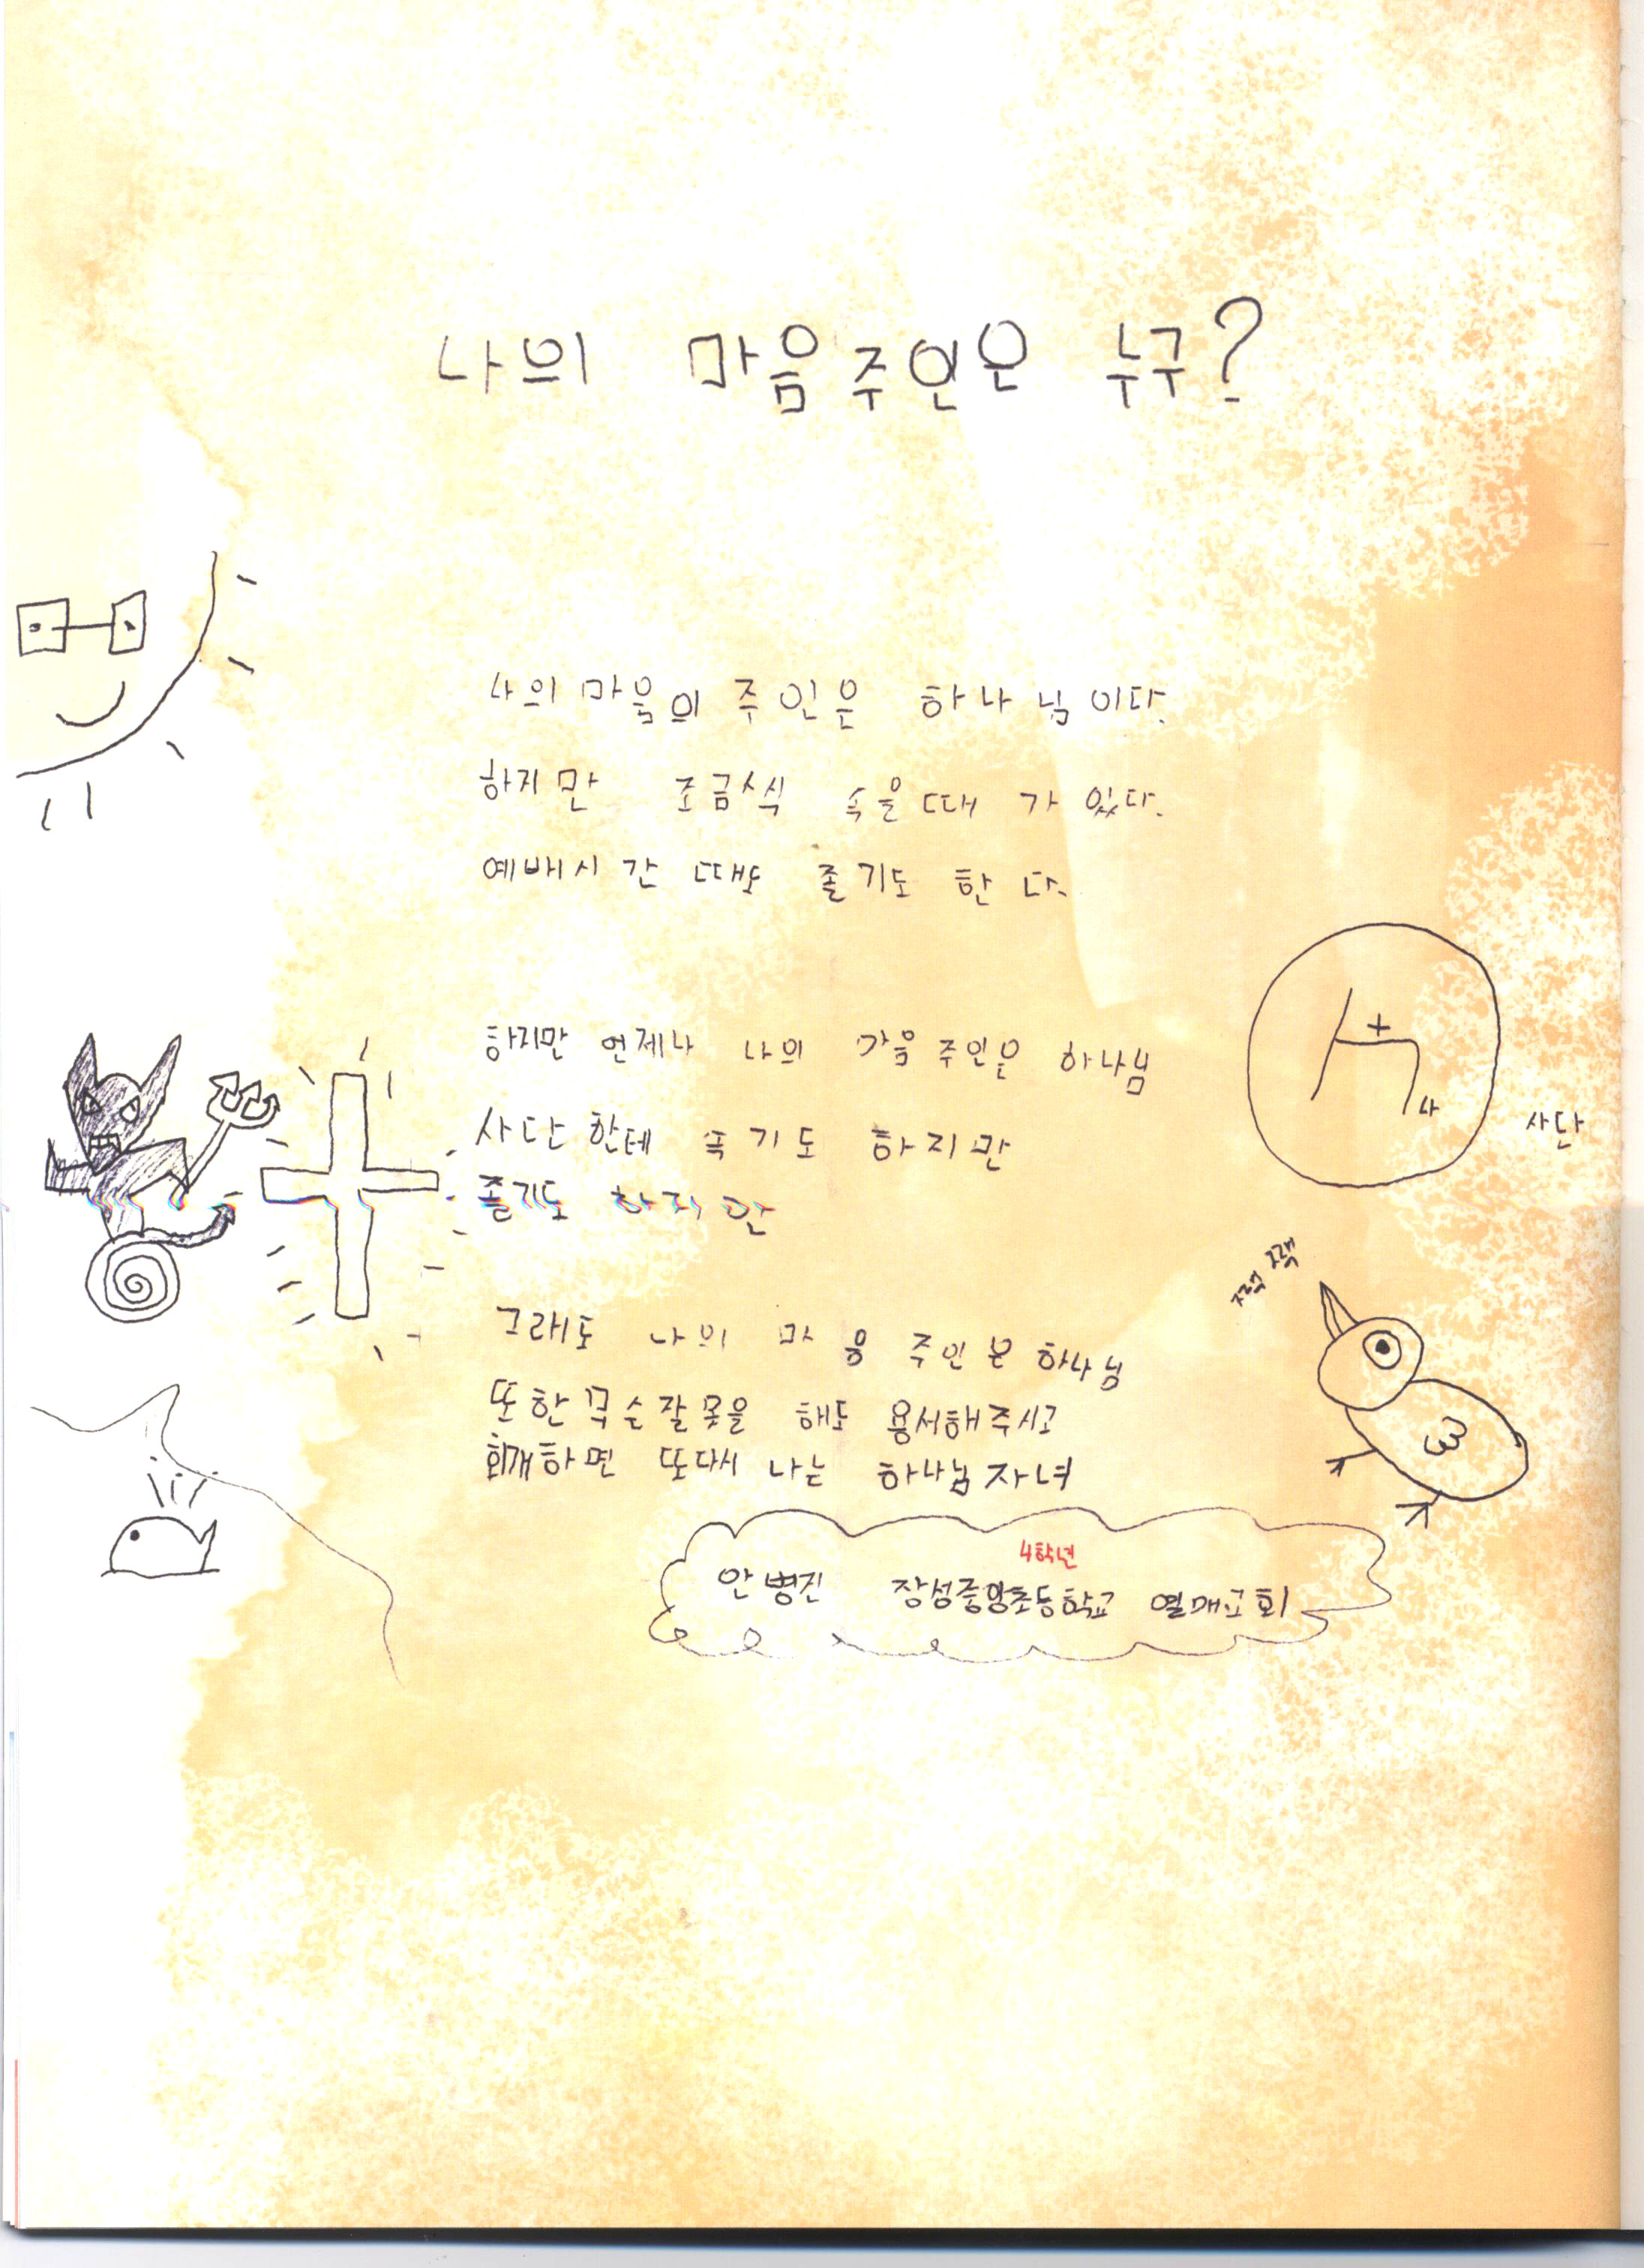 나의 마음주인은 누구?
나의 마음의 주인은 하나님이다.
하지만 조금식 속을때가 있다.
예배시간 때도 졸기도 한다.
하지만 언제나 나의 마음 주인은 하나님
사단한테 속기도 하지만
졸기도 하지만
사단
그래도 나의 마음 주인은 하나님
짹 짹
또한 무슨잘못을 해도 용서해주시고
회개하면 또다시 나는 하나님자녀
4학년
안병진 장성중앙초등학교 열매교회